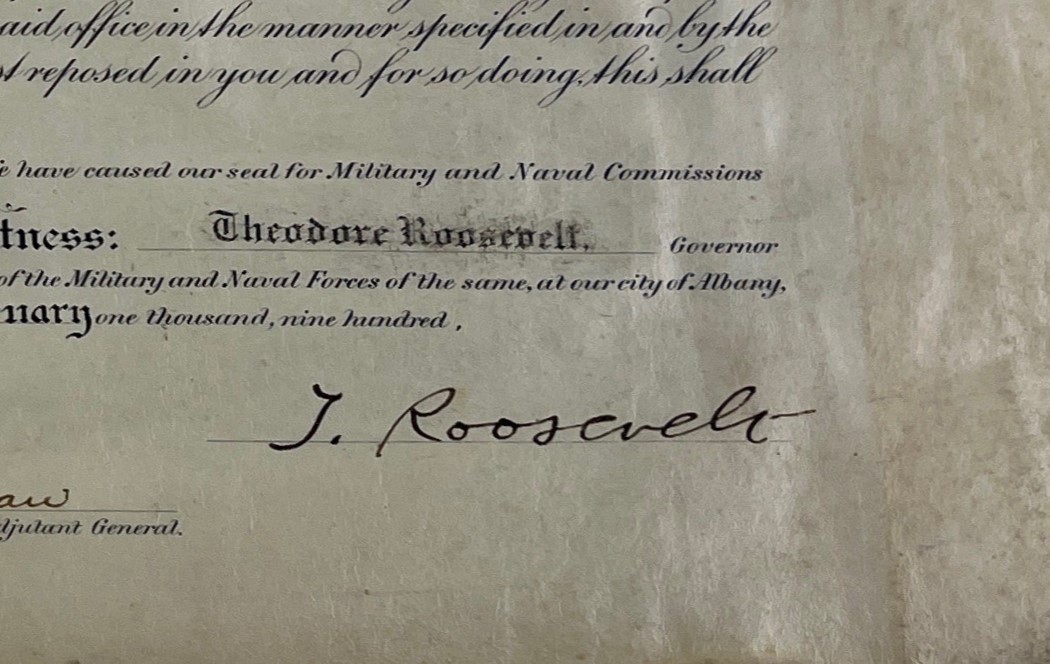 aid office in the manner specified in and by the
reposed in you and for so doing, this shall
have caused our seal for Military and Naval Commissions
tness: Theodore Roosevelt, Governor
of the Military and Naval Forces of the same, at our city of Albany,
nary one thousand, nine hundred,
T. Roosevelt
djutant General.